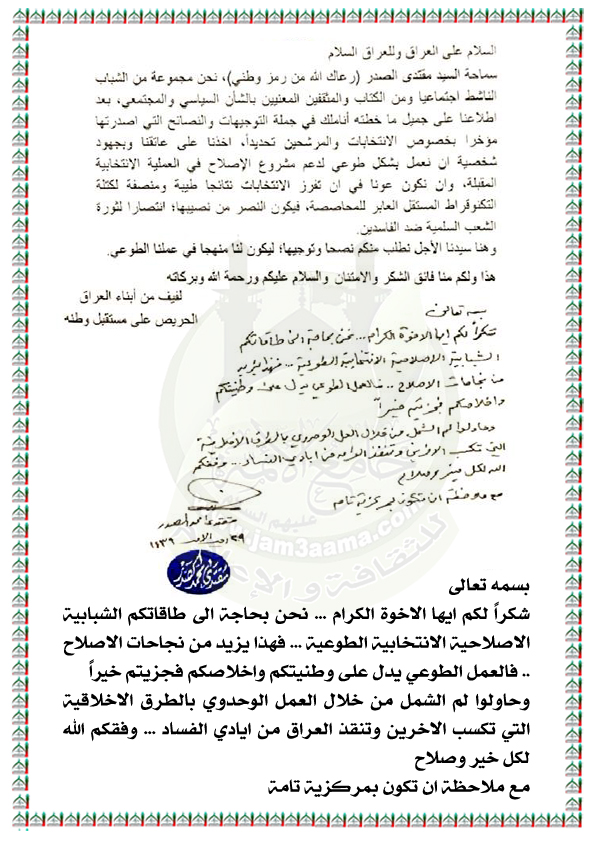 السلام على العراق وللعراق السلام
سماحة السيد مقتدى الصدر (رعاك الله من رمز وطني)، نحن مجموعة من الشباب
الناشط اجتماعيا ومن الكتاب والمثقفين المعنيين بالشأن السياسي والمجتمعي، بعد
اطلاعنا على جميل ما خطته أناملك في جملة التوجيهات والنصائح التي اصدرتها
مؤخرا بخصوص الانتخابات والمرشحين تحديداً، اخذنا على عاتقنا وبجهود
شخصية ان نعمل بشكل طوعي لدعم مشروع الإصلاح في العملية الانتخابية
المقبلة، وان نكون عونا في ان تفرز الانتخابات نتائجا طيبة ومنصفة لكتلة
التكنوقراط المستقل العابر للمحاصصة، فيكون النصر من نصيبها؛ انتصارا لثورة
الشعب السلمية ضد الفاسدين.
وهنا سيدنا الأجل نطلب منكم نصحا وتوجيها؛ ليكون لنا منهجا في عملنا الطوعي.
هذا ولكم منا فائق الشكر والامتنان والسلام عليكم ورحمة الله وبركاته
لفيف من أبناء العراق
الحريص على مستقبل وطنه
بسمه تعالى
شكراً لكم ايها الاخوة الكرام ... نحن بحاجة الى طاقاتكم
الشبابية الاصلاحية الانتخابية الطوعية ... فهذا يزيد
من نجاحات الاصلاح .. فالعمل الطوعي يدل على وطنيتكم
واخلاصكم فجزيتم خيراً
وحاولوا لم الشمل من خلال العمل الوحدوي بالطرق الاخلاقية
التي تكسب الاخرين وتنقذ العراق من ايادي الفساد ... وفقكم
الله لكل خير وصلاح
مع ملاحظة ان تكون بمركزية تامة
مقتدى الصدر
١٤٣٩
مقتدى الصدر
جامع الأئمة
عليهم السلام
www.jam3aama.com
للثقافة والإعلام
بسمه تعالى
شكراً لكم ايها الاخوة الكرام ... نحن بحاجة الى طاقاتكم الشبابية
الاصلاحية الانتخابية الطوعية ... فهذا يزيد من نجاحات الاصلاح
.. فالعمل الطوعي يدل على وطنيتكم واخلاصكم فجزيتم خيراً
وحاولوا لم الشمل من خلال العمل الوحدوي بالطرق الاخلاقية
التي تكسب الاخرين وتنقذ العراق من ايادي الفساد ... وفقكم الله
لكل خير وصلاح
مع ملاحظة ان تكون بمركزية تامة